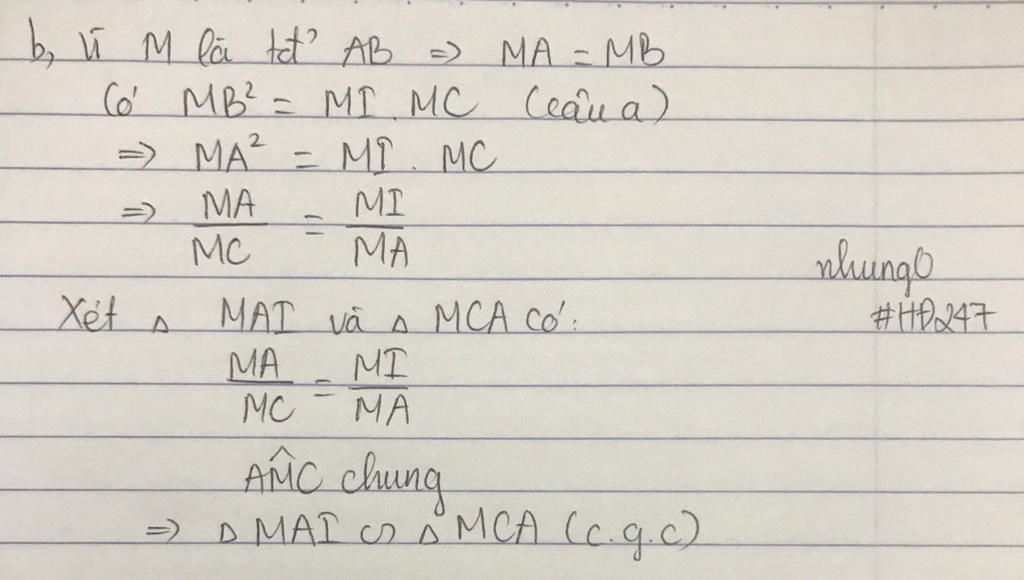 b, Vì M là tđ' AB => MA = MB
Có MB² = MI . MC (câu a)
=> MA² = MI . MC
=> MA/MC = MI/MA
nhung0
#HĐ247
Xét △ MAI và △ MCA có:
MA/MC = MI/MA
AM̂C chung
=> △ MAI ∽ △ MCA (c.g.c)